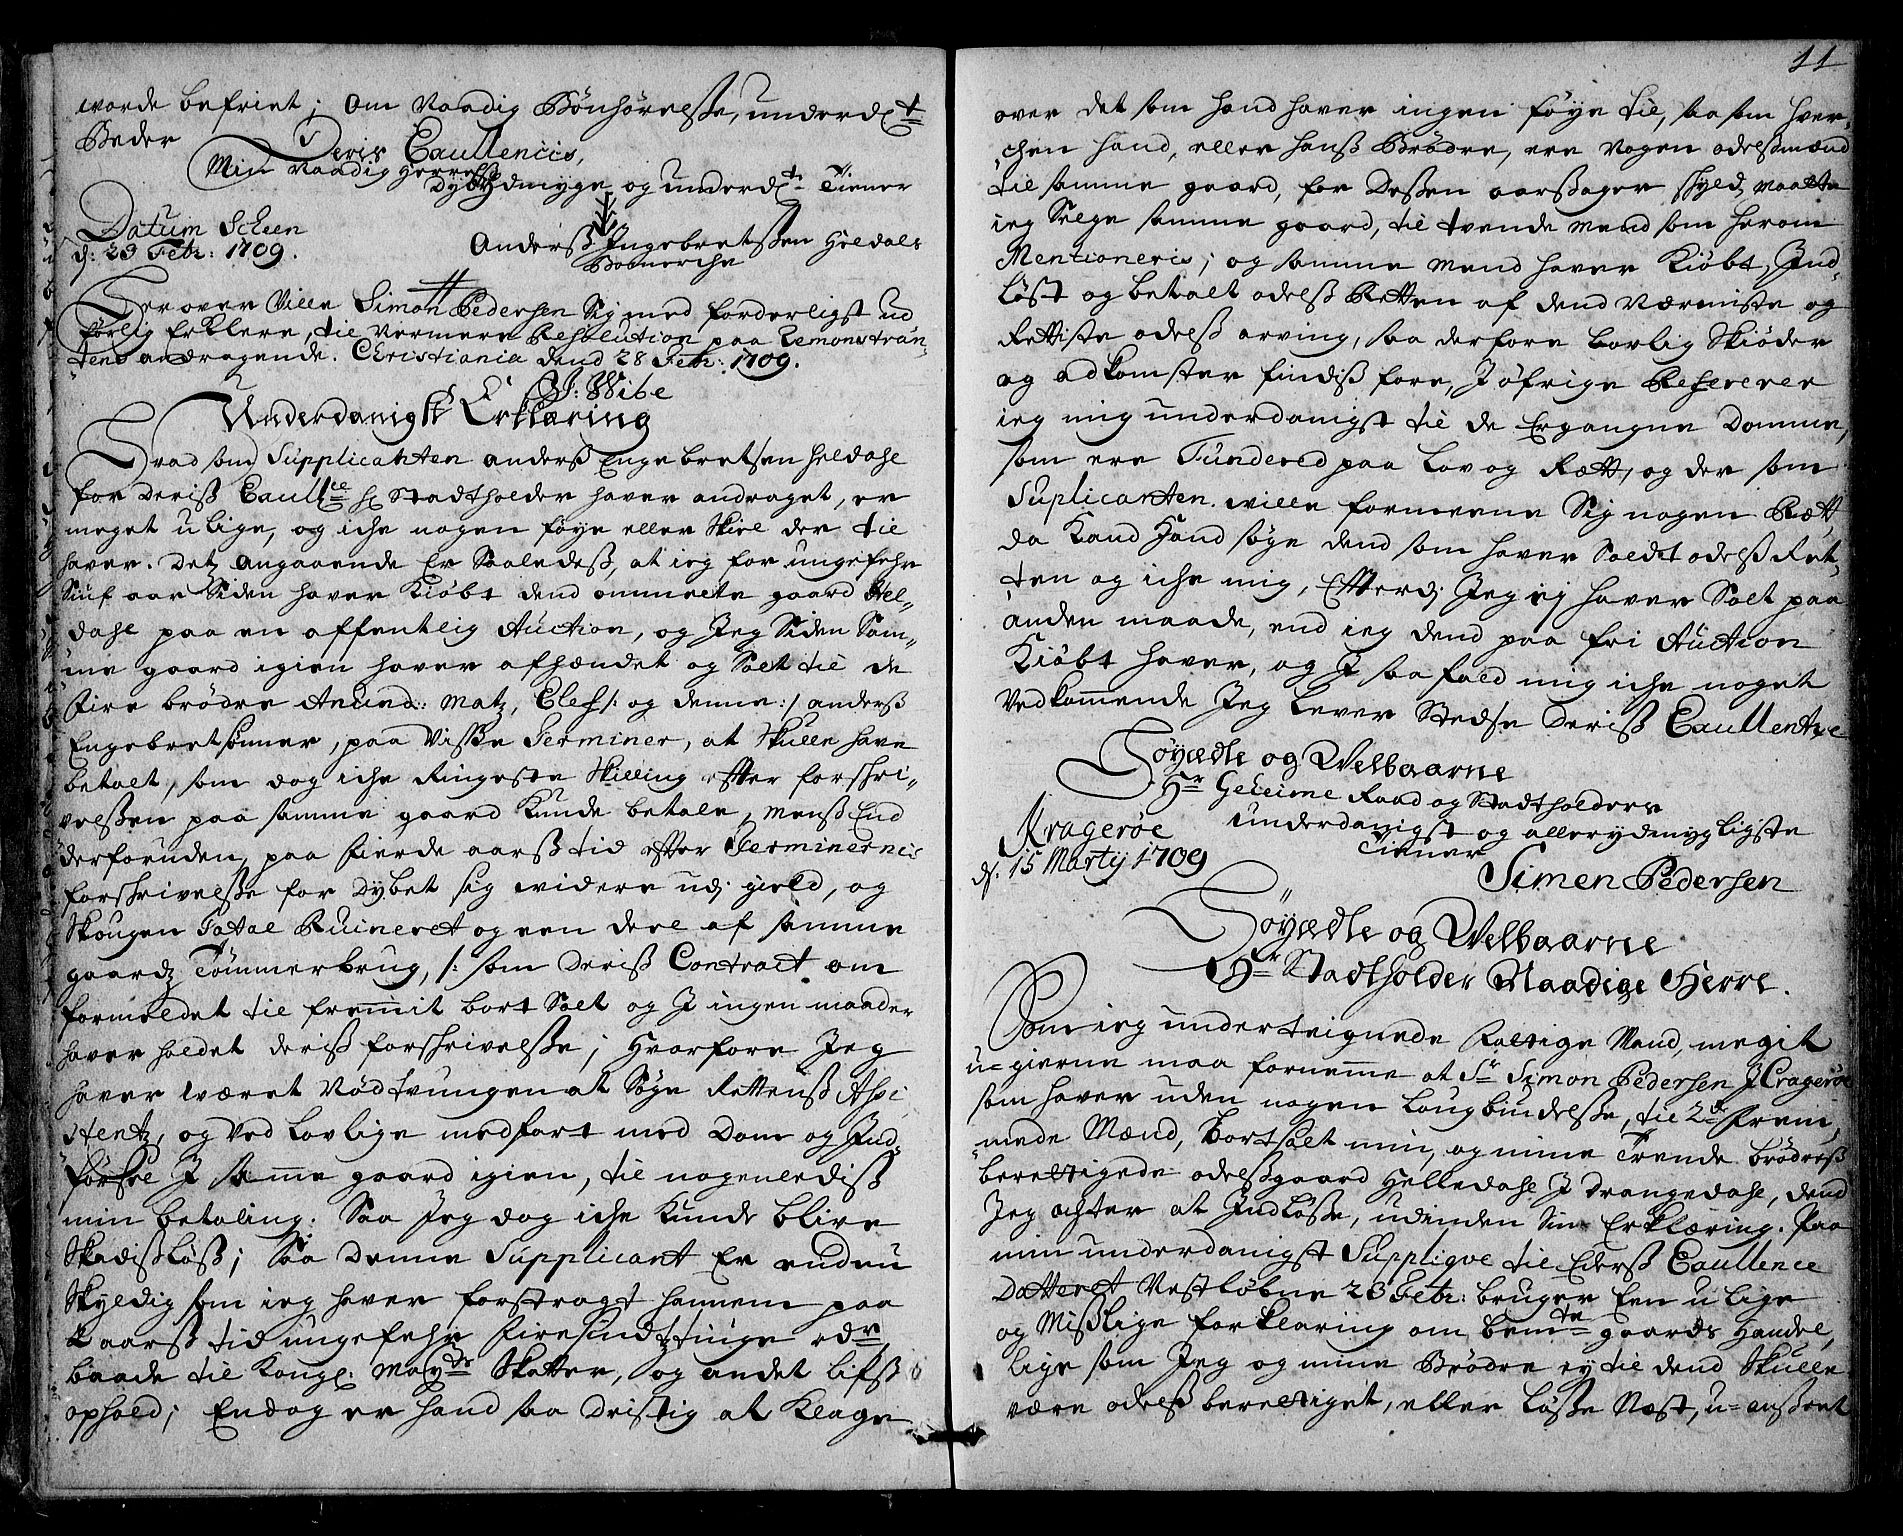 worde befriet; om Naadig Bönhörelsse, underd:t
Beder
Deris Excellences,
Min Naadig Herres
Dybydmyge og underd:t Tiener
Datum Scheen
d: 23 Febr: 1709.
Anderss Ingebretssen Heldals
Boemerche
Her over ville Simon Pedersen Sig med forderligst ud
förlig Erklere, til nermere Ressolution paa Remonstran-
tens andragende. Christiania dend 28 Febr: 1709.
J: Wibe
Underdanigst Erklæring
Hvad som Supplicanten anderss Engebretsen Heldahl
for Deriss Excell:ce H: Stadtholder haver andraget, er
meget ulige, og iche nogen föye eller Skiel der til
haver. Det angaaende Er Saaledess, at ieg for ungefehr
Siuf aar Siden haver Kiöbt dend ommelte gaard Hel-
dahl paa en offentlig Auction, og Jeg Siden Sam-
me gaard igien haver afhændet og Solt til de
fire brödre Anund: Matz, Olef /: og denne :/ anderss
Engebretsönner, paa Visse Terminer, at Skulle have
betalt, som dog iche Ringeste Skilling efter forskri-
velssen paa samme gaard Kunde betale, menss End
derforuden, paa fierde aarss tid efter Terminernis
forskrivelsse for dybet sig widere ud: gield, og
Skougen Total Ruineret og een deel af samme
gaardz Tömmerbrug, /: som Deriss Contract om
formeldet til fremmit bort Solt og J ingen maader
haver holdet deriss forskrivelsse; Hvorfore Jeg
haver været Nödtvungen at Söge Rettenss Assi
stentz, og Ved Lovlige medfart med Dom og Ind-
försel J samme gaard igien, til nogenlediss
min betaling. Saa Jeg dog iche Kunde blive
Skadisslöss; Saa denne Supplicant Er endnu
Skyldig som ieg haver forstragt hannem paa
2 aarss tid ungefehr firesindztiuge rdr
baade til Kongl. May:ts Skatter, og andet lifss
ophold; Endog er hand saa dristig at Klage
11
over det som hand haver ingen föye til, saa som hver-
chen hand, eller hanss Brödre, ere nogen odelssmænd
til samme gaard, for dessen aarssager skyld, maatte
ieg Selge samme gaard, til tvende mend som herom
Mentioneris; og samme mend haver Kiöbt, Ind-
löst og betalt odelss Retten af dend Nærmiste og
Rettiste odelss arving, saa derfore Lovlig Skiöder
og adkomster findiss fore, J öfrige Refererer
ieg mig underdanigst til de Ergangne Domme,
som ere Funderet paa Lov og Rætt, og der som
Suplicanten ville formeene Sig nogen Rætt
da Kand Hand söge dend som haver Soldt odelss Ret-
ten og iche mig, Efterdj Jeg ej haver Solt paa
anden maade, end ieg dend paa fri Auction
Kiöbt haver, og J saa fald mig iche noget
Vedkommende Jeg Lever Stedse Deriss Excellentze
Höyædle og Velbaarne
Hr Geheime Raad og Stadtholders
underdanigst og allerydmygligste
Tiener
Kragerøe
d: 15 Marty 1709
Simen Pedersen
Höyædle og Velbaarne
Hr Stadtholder Naadige Herre.
Som ieg undertegnede fattige Mand, megit
u-gierne maa fornemme at Sr Simon Pedersen J Cragerøe
som haver uden nogen Laugbindelsse, til 2de frem-
mede Mænd, bortsolt min, og mine Trende brödress
berettigede odelssgaard Helledahl J Drangedahl, dend
Jeg agter at Indlösse, udinden Sin Erklæring. Paa
min underdanigst Supplique til Ederss Excellence
Datteret Nestløbne 23 Febr: bruger Een ulige
og Misslige forklaring om bem:te gaards Handel,
lige som Jeg og mine Brödre ey til dend Skulle
være odelss berettiget, eller lösse Næst, u-ansseet